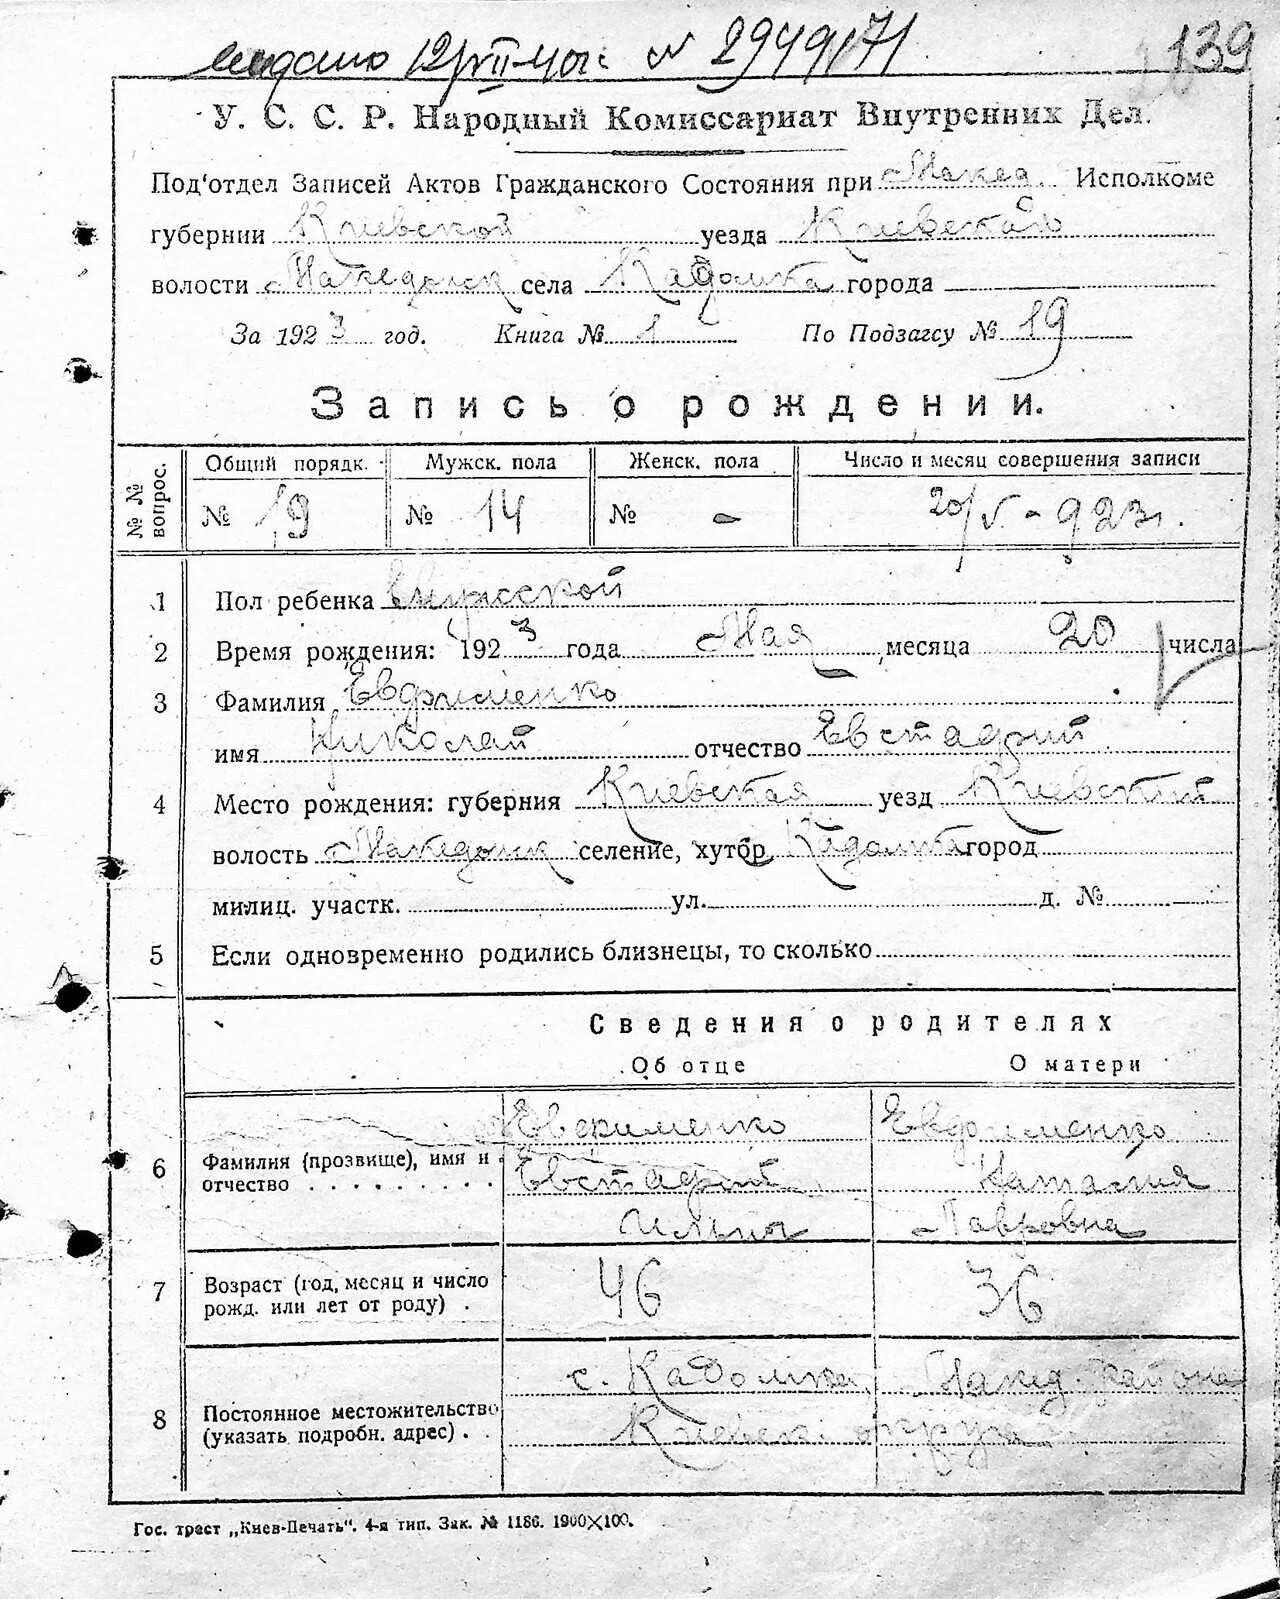 139
У. С. С. Р. Народный Комиссариат Внутренних Дел.
Под'отдел Записей Актов Гражданского Состояния при Макед. Исполкоме
губернии Киевской уезда Киевского
волости Македонск села Кадомка города
За 1923 год. Книга № 1 По Подзагсу № 19
Запись о рождении.
№ № вопрос. Общий порядк. Мужск. пола Женск. пола Число и месяц совершения записи
№ 19 № 14 № - 20/V - 923 г.
1 Пол ребенка мужской
2 Время рождения: 1923 года Мая месяца 20 числа
3 Фамилия Евфрименко
имя Николай отчество Евстафий
4 Место рождения: губерния Киевская уезд Киевский
волость Македонск селение, хутор Кадомка город
милиц. участк. ул. д. №
5 Если одновременно родились близнецы, то сколько
Сведения о родителях
Об отце О матери
Евфрименко Евфрименко
6 Фамилия (прозвище), имя и отчество Евстафий Наталия
Ильич Лавровна
7 Возраст (год, месяц и число рожд. или лет от роду) . 46 36
с. Кадомка Макед. района
8 Постоянное местожительство (указать подробн. адрес) . . Киевск. округа
Гос. трест „Киев-Печать“. 4-я тип. Зак. № 1186. 1900×100.